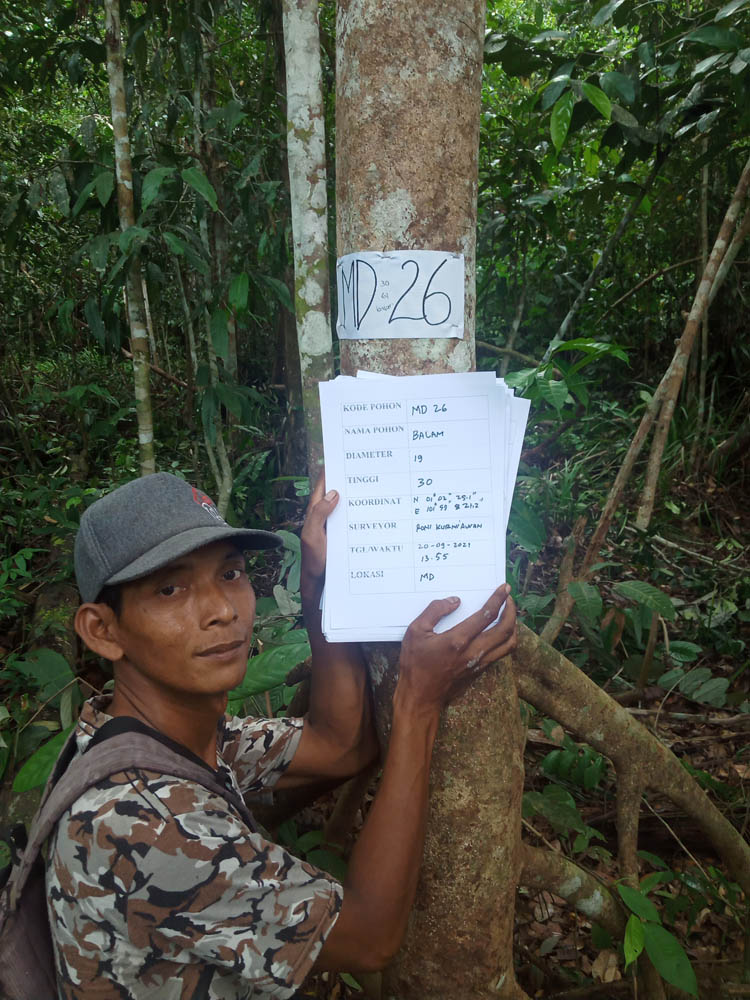 MD 26
30
KODE POHON MD 26
NAMA POHON BALAM
DIAMETER 19
TINGGI 30
KOORDINAT N 01° 02"
E 101°
SURVEYOR RONI KURNIAWAN
TGL/WAKTU 20-09-2021
13.55
LOKASI MD